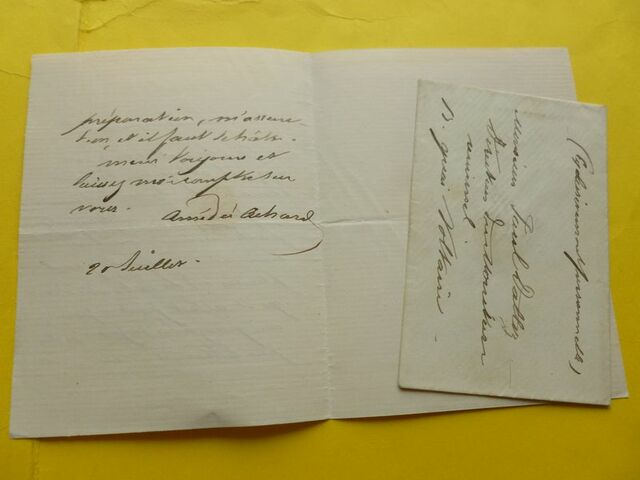 préparation, m'assure-
t-on et il faut se hâter.
aimez moi toujours et
laissez moi compter sur
vous. Amédée Achard
20 Juillet.
(Très personnelle)
Monsieur Paul Dalloz
Directeur du Moniteur
universel
13. quai Voltaire